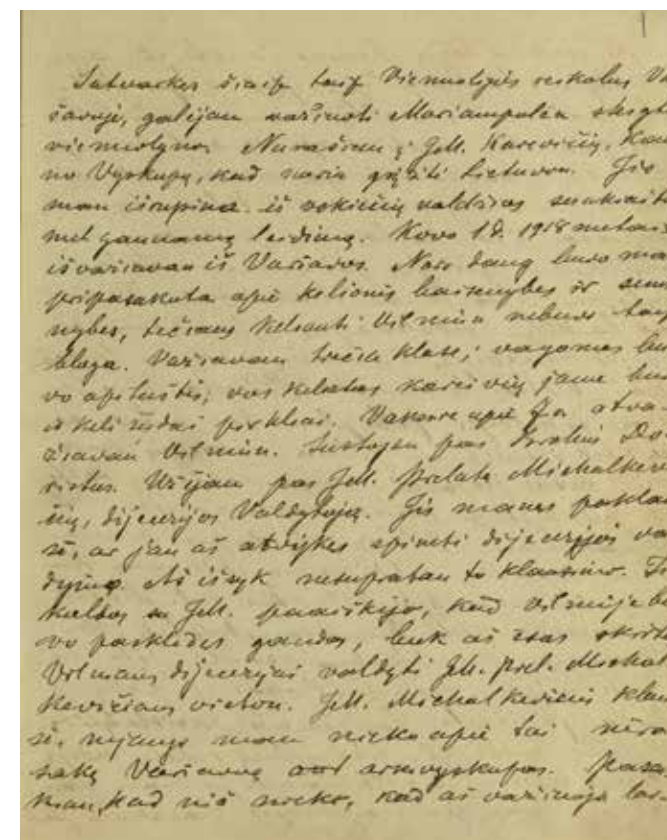 Sutvarkęs šiaip taip Vienuolijos reikalus Va
šavoje, galėjau važiuoti Mariampolėn
vienuolynan. Nurašiau į JM. Karevičių, Kau
no Vyskupą, kad noriu grįžti Lietuvon. Jis
man išrupino iš vokiečių valdžios sunkiai
gaunamą leidimą. Kovo 18. 1918 metais
išvažiavau iš Varšavos. Nors daug buvo man
pripasakota apie kelionės baisenybes ir sun
nybes, tečiaus keliauti Vilniun nebuvo taip
bloga. Važiavom trečia klase; vagonas bu
vo aptuštis; vos keletas kareivių jame buvo
ir keli žydai pirkliai. Vakare apie 7 a. atva
žiavau Vilniun. Sustojau pas brolius Do
Užėjau pas JM. Prelatą Michalkevi
čių, dijecezijos Valdytoją. Jis manęs paklau
sė, ar jau aš atvykęs apimti dijecezijos val
dymo. Aš išsyk nesupratau to klausimo. Iš
kalbos su JM. paaiškėjo, kad Vilniuje bu
vo pasklidęs gandas, buk aš esąs skirtas
Vilniaus dijecezijai valdyti JM. prel. Michal
kevičiaus vieton. JM. Michalkevičius klau
sė, nejaugi man nieko apie tai nėra
sakę Varšavoje arkivyskupas. Pasa
kiau, kad nės nieko, kad aš važiuoju